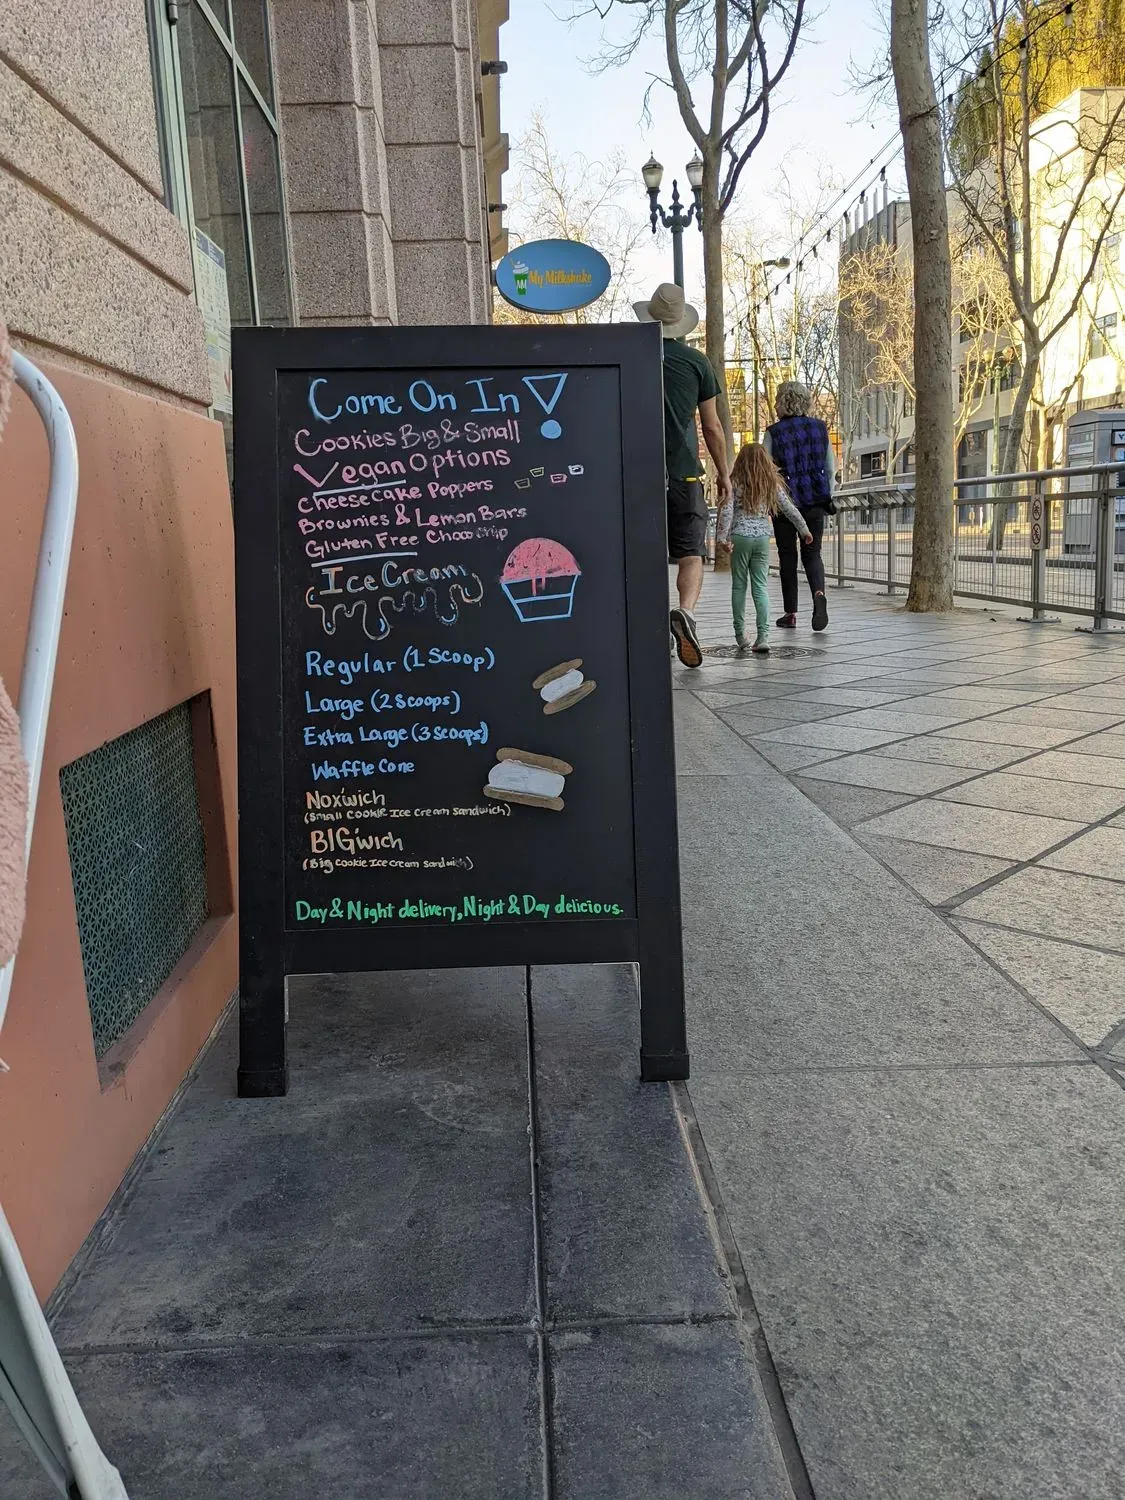 My Milkshake
Come On In!
Cookies Big & Small
Vegan Options
Cheesecake Poppers
Brownies & Lemon Bars
Gluten Free Choco Chip
Ice Cream
Regular (1 Scoop)
Large (2 Scoops)
Extra Large (3 Scoops)
Waffle Cone
Nox'wich
(Small Cookie Ice Cream Sandwich)
BIG'wich
(Big Cookie Ice Cream Sandwich)
Day & Night delivery, Night & Day delicious.